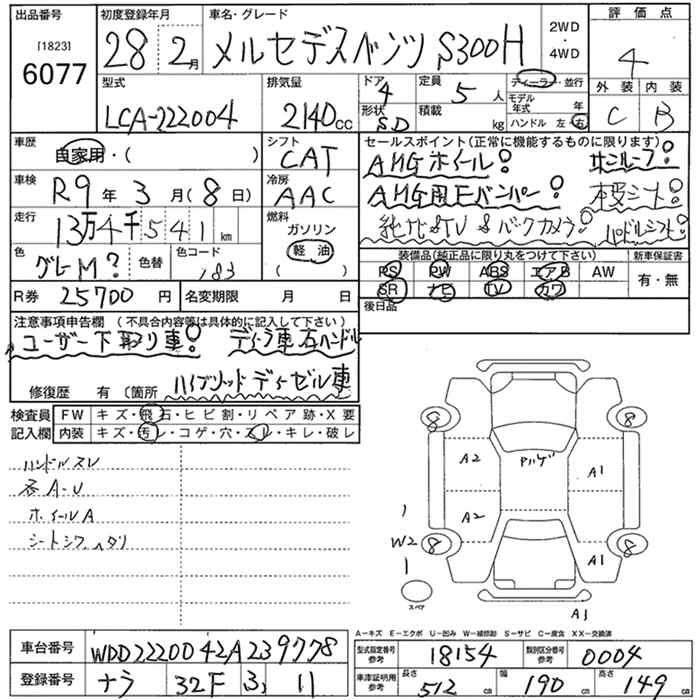 出品番号 初度登録年月 車名・グレード 評価点
[1823]
6077 28年 2月 メルセデスベンツ S300H 2WD・4WD 4
外装 内装
C B
型式 排気量 ドア 定員 ディーラー・並行
LCA-222004 2140cc 4 5人 モデル年式 年
形状 積載 ハンドル 左・右
SD kg
車歴 シフト セールスポイント(正常に機能するものに限ります)
自家用・( ) CAT AMGホイール! サンルーフ!
車検 冷房 AMG用Fバンパー! 本皮シート!
R9年 3月(8日) AAC 純ナビSTV&バックカメラ! パドルシフト!
走行 燃料
13万4千541km ガソリン
軽油
( )
色 色替 色コード 装備品(純正品に限り丸をつけて下さい) 新車保証書
グレーM? 183 PS PW ABS エアB AW 有・無
SR ナビ TV カワ
R券 25700円 名変期限 月 日 後日品
注意事項申告欄 (不具合内容等は具体的に記入して下さい)
ユーザー下取り車! ディーラ車右ハンドル
ハイブリッドディーゼル車
修復歴 有 〔箇所
検査員記入欄
FW キズ・飛石・ヒビ割・リペア跡・X要
内装 キズ・汚レ・コゲ・穴・スレ・キレ・破レ
ハンドルスレ
各A-U
ホイールA
シートシワ ヘタリ
8 8
A2 A1
A2 W2 8 8 A1
スペア
A1
A-キズ E-エクボ U-凹み W-補修跡 S-サビ C-腐食 XX-交換済
車台番号 WDD2220042A239778
型式指定番号 参考 18154 類別区分番号 参考 0004
登録番号 ナラ 32F 3 11
車庫証明用 参考 長さ 512cm 幅 190cm 高さ 149cm